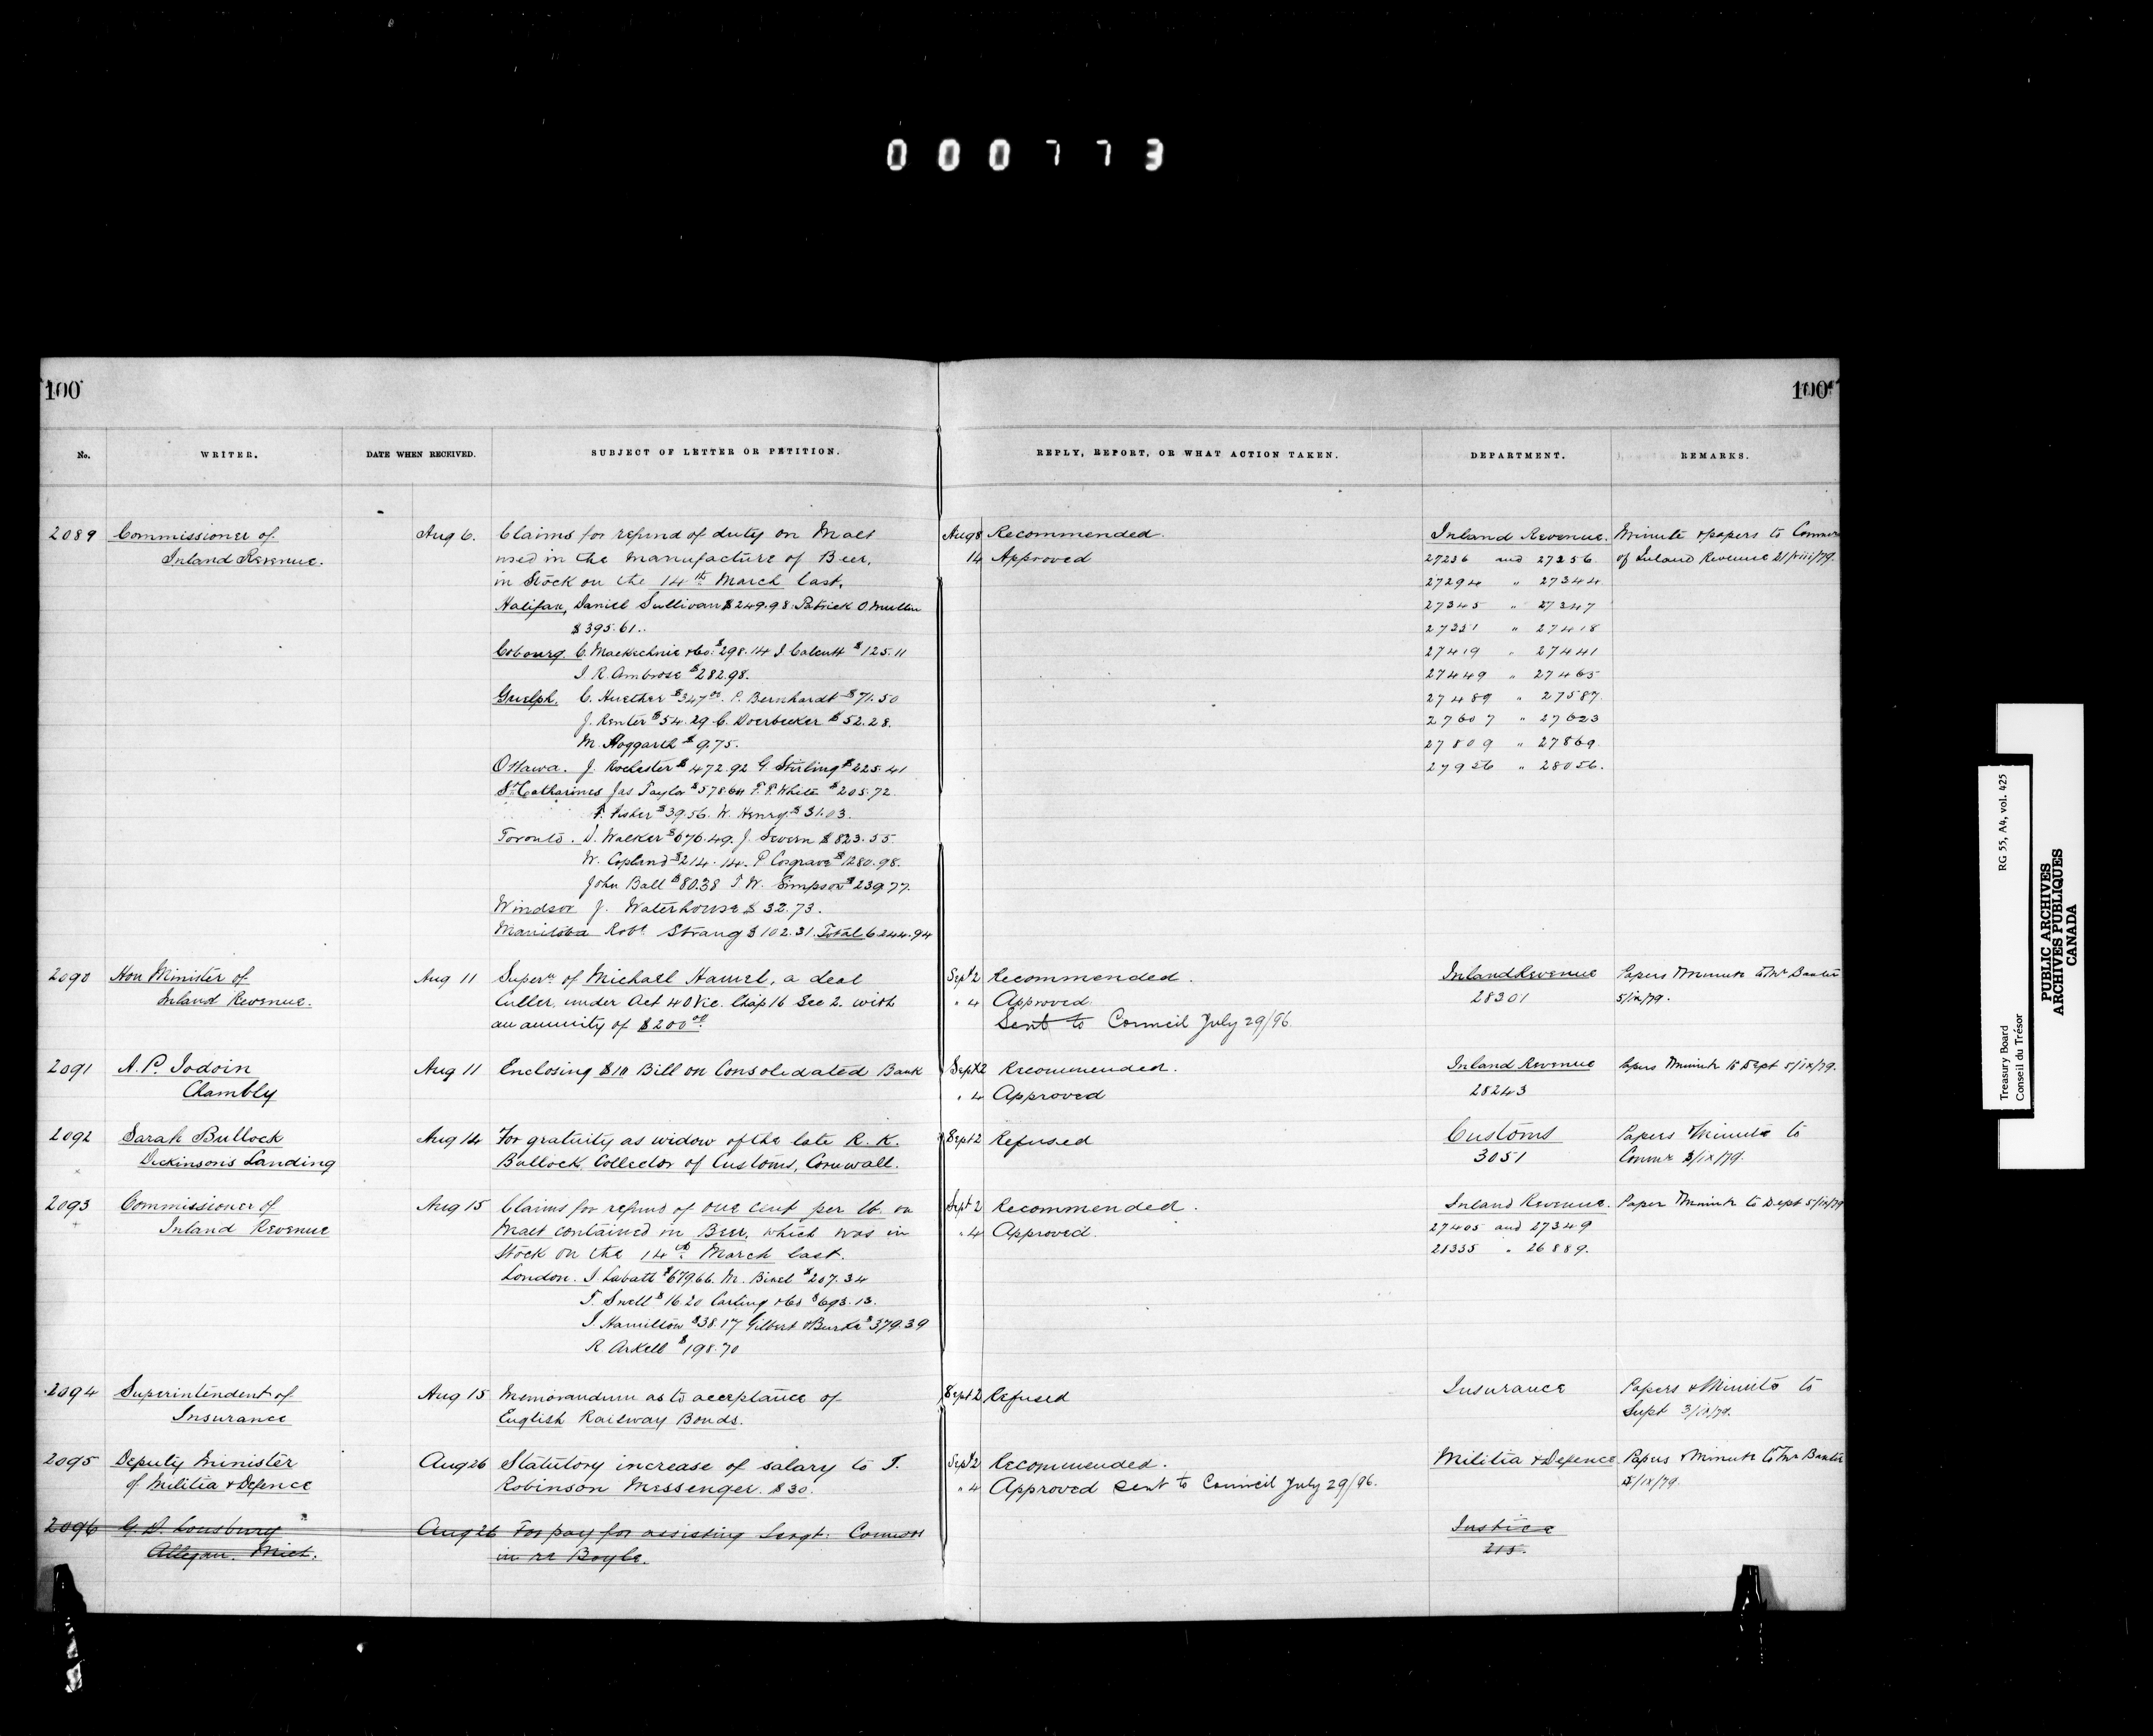 000773
100
100
No.
WRITER.
DATE WHEN RECEIVED.
SUBJECT OF LETTER OR PETITION.
REPLY, REPORT, OR WHAT ACTION TAKEN.
DEPARTMENT.
REMARKS.
2089 Commissioner of Aug 6. Claims for refund of duty on Malt Aug 8 Recommended. Inland Revenue. Minute & papers to Commr
Inland Revenue. used in the manufacture of Beer, 14 Approved 27236 and 27256 of Inland Revenue 21/viii/79.
in Stock on the 14th March last, 27294 " 27344
Halifax, Daniel Sullivan $249.98 Patrick O Mullin 27345 " 27347
$395.61. 27351 " 27418
Cobourg. C. Mackechnie & Co. $298.14 J Calcutt $125.11 27419 " 27441
J. R. Ambrose $282.98. 27449 " 27465
Guelph. C. Huether $347 P. Bernhardt $71.50 27489 " 27587
J. Renter $54.29 C. Doerbecker $52.28. 27607 " 27623
M. Hoggarth $9.75. 27809 " 27869
Ottawa. J. Rochester $472.92 G. Stirling $225.41 27956 " 28056.
St Catharines Jas Taylor $578.64 T. P. White $205.72
F. Fisher $39.56. W. Henry $31.03.
Toronto. D. Walker $676.49. J. Severn $823.55
W. Copland $214.14. P Cosgrave $1280.98.
John Ball $80.38 T. W. Simpson $239.77.
Windsor J. Waterhouse $32.73.
Manitoba Robt Strang $102.31. Total 6244.94
2090 Hon Minister of Aug 11 Superⁿ of Michael Hamel, a deal Sept 2 Recommended. Inland Revenue Papers & Minute to Mr Baxter
Inland Revenue. Culler, under Act 40 Vic. Chap 16 Sec 2. with " 4 Approved. 28301 5/ix/79.
an annuity of $200.00 Sent to Council July 29/96.
2091 A. P. Jodoin Aug 11 Enclosing $10 Bill on Consolidated Bank Sept 2 Recommended. Inland Revenue Papers & Minute to Dept 5/ix/79.
Chambly " 4 Approved 28243
2092 Sarah Bullock Aug 14 For gratuity as widow of the late R. K. Sept 2 Refused Customs Papers & Minute to
Dickinson's Landing Bullock, Collector of Customs, Cornwall. 3051 Commr 3/ix/79.
2093 Commissioner of Aug 15 Claims for refund of one cent per lb. on Sept 2 Recommended. Inland Revenue. Paper & Minute to Dept 5/ix/79
Inland Revenue Malt contained in Beer, which was in " 4 Approved. 27405 and 27349
Stock on the 14th March last. 21335 " 26889.
London. J. Labatt $679.66. M. Bixel $207.34
T. Snell $16.20 Carling & Co $693.13.
J Hamilton $38.17 Gilbert & Burke $379.39
R. Arkell $198.70
2094 Superintendent of Aug 15 Memorandum as to acceptance of Sept 2 Refused Insurance Papers & Minute to
Insurance English Railway Bonds. Supt 3/ix/79.
2095 Deputy Minister Aug 26 Statutory increase of salary to T. Sept 2 Recommended. Militia & Defence Papers & Minute to Mr Baxter
of Militia & Defence Robinson Messenger. $30. " 4 Approved Sent to Council July 29/96. 5/ix/79.
2096 G. D. Lounsbury Aug 26 For pay for assisting Sergt. Connors Justice
Allegan. Mich. in re Boyle. 215.
RG 55, A4, vol. 425
Treasury Board
Conseil du Trésor
PUBLIC ARCHIVES
ARCHIVES PUBLIQUES
CANADA